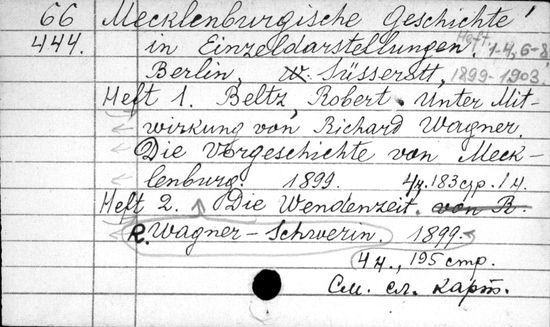 66 Mecklenburgische Geschichte
444. in Einzeldarstellungen, Heft 1-4, 6-8,
Berlin, W. Süsserott, 1899-1903
Heft 1. Beltz, Robert. Unter Mit-
wirkung von Richard Wagner.
Die Vorgeschichte von Meck-
lenburg. 1899. 4н. 183 стр. 1 н.
Heft 2. Die Wendenzeit. von R.
R. Wagner-Schwerin. 1899.
4 н., 195 стр.
См. сл. карт.